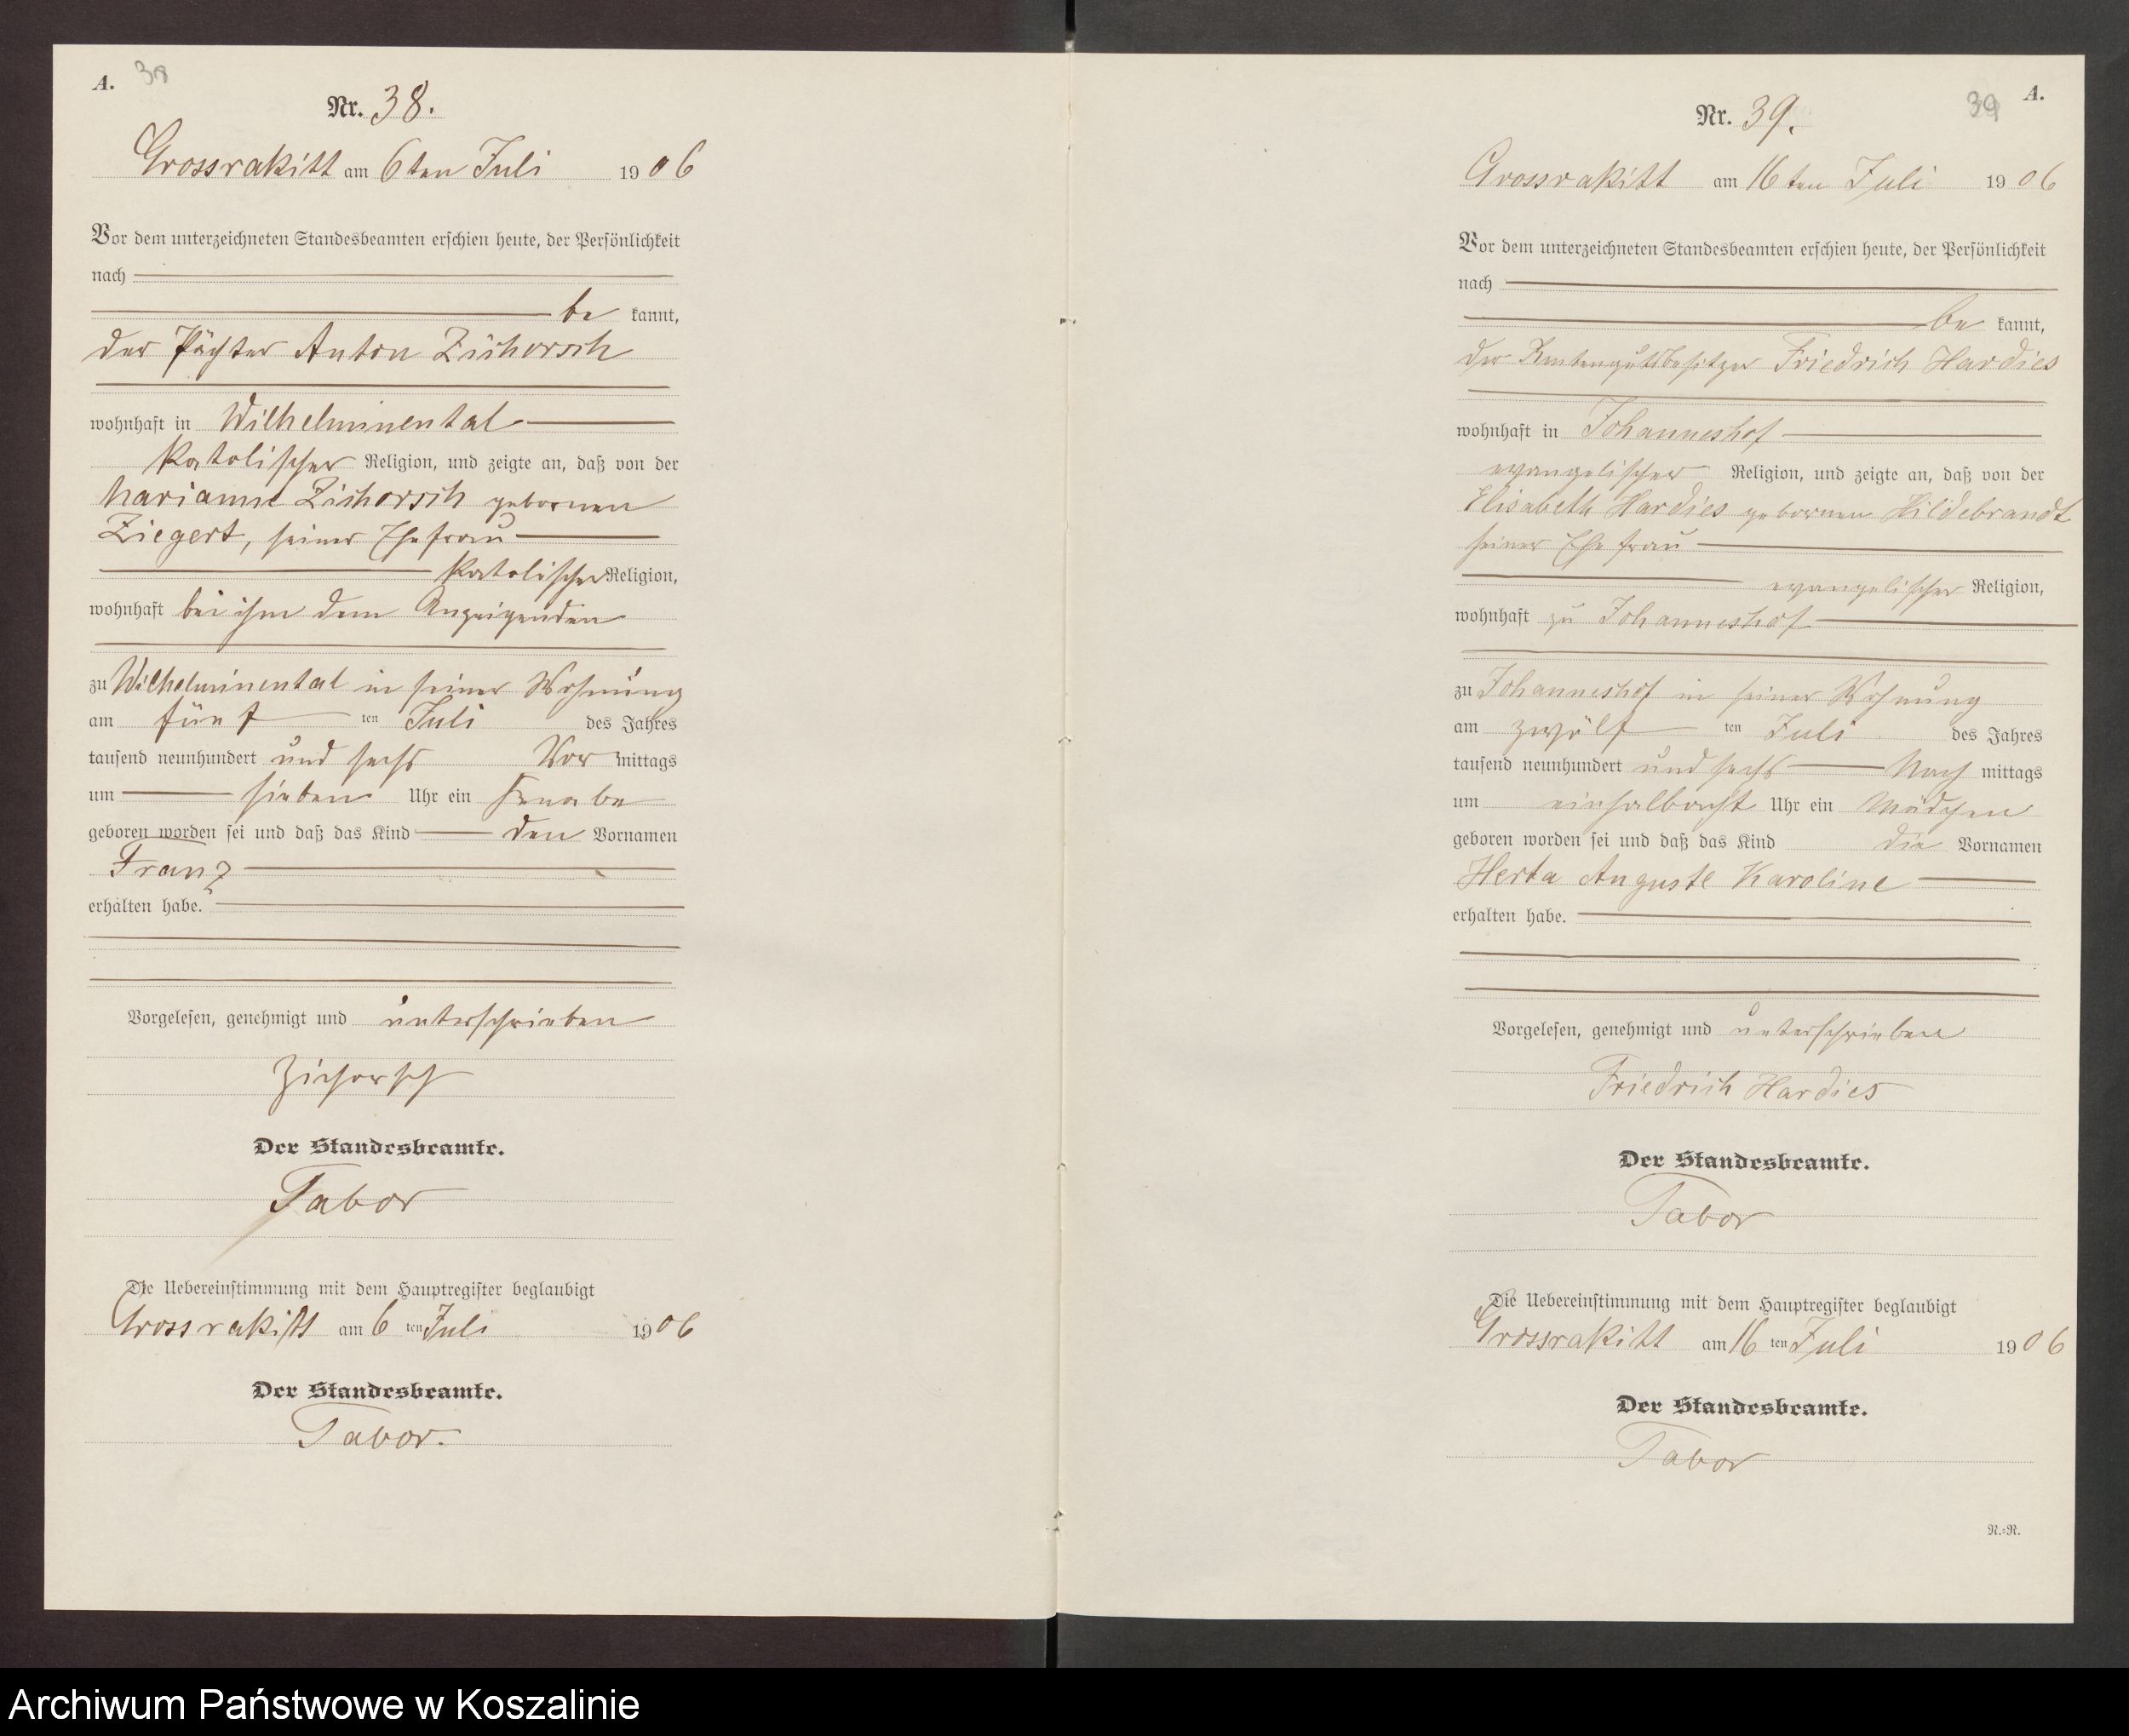 A. 38
Nr. 38.
Grossrakitt am 6ten Juli 1906
Vor dem unterzeichneten Standesbeamten erschien heute, der Persönlichkeit
nach
be kannt,
der Pächter Anton Zichorsch
wohnhaft in Wilhelminental
katolischer Religion, und zeigte an, daß von der
Marianne Zichorsch gebornen
Ziegert, seiner Ehefrau
katolischer Religion,
wohnhaft bei ihm dem Anzeigenden
zu Wilhelminental in seiner Wohnung
am fünf ten Juli des Jahres
tausend neunhundert und sechs Vor mittags
um sieben Uhr ein Knabe
geboren worden sei und daß das Kind den Vornamen
Franz
erhalten habe.
Vorgelesen, genehmigt und unterschrieben
Zichorsch
Der Standesbeamte.
Tabor
Die Uebereinstimmung mit dem Hauptregister beglaubigt
Grossrakitt am 6 ten Juli 1906
Der Standesbeamte.
Tabor.
39 A.
Nr. 39.
Grossrakitt am 16ten Juli 1906
Vor dem unterzeichneten Standesbeamten erschien heute, der Persönlichkeit
nach
be kannt,
der Rentengutsbesitzer Friedrich Hardies
wohnhaft in Johanneshof
evangelischer Religion, und zeigte an, daß von der
Elisabeth Hardies gebornen Hildebrandt
seiner Ehefrau
evangelischer Religion,
wohnhaft zu Johanneshof
zu Johanneshof in seiner Wohnung
am zwölf ten Juli des Jahres
tausend neunhundert und sechs Nach mittags
um einhalbacht Uhr ein Mädchen
geboren worden sei und daß das Kind die Vornamen
Herta Auguste Karoline
erhalten habe.
Vorgelesen, genehmigt und unterschrieben
Friedrich Hardies
Der Standesbeamte.
Tabor
Die Uebereinstimmung mit dem Hauptregister beglaubigt
Grossrakitt am 16 ten Juli 1906
Der Standesbeamte.
Tabor
N.=N.
Archiwum Państwowe w Koszalinie